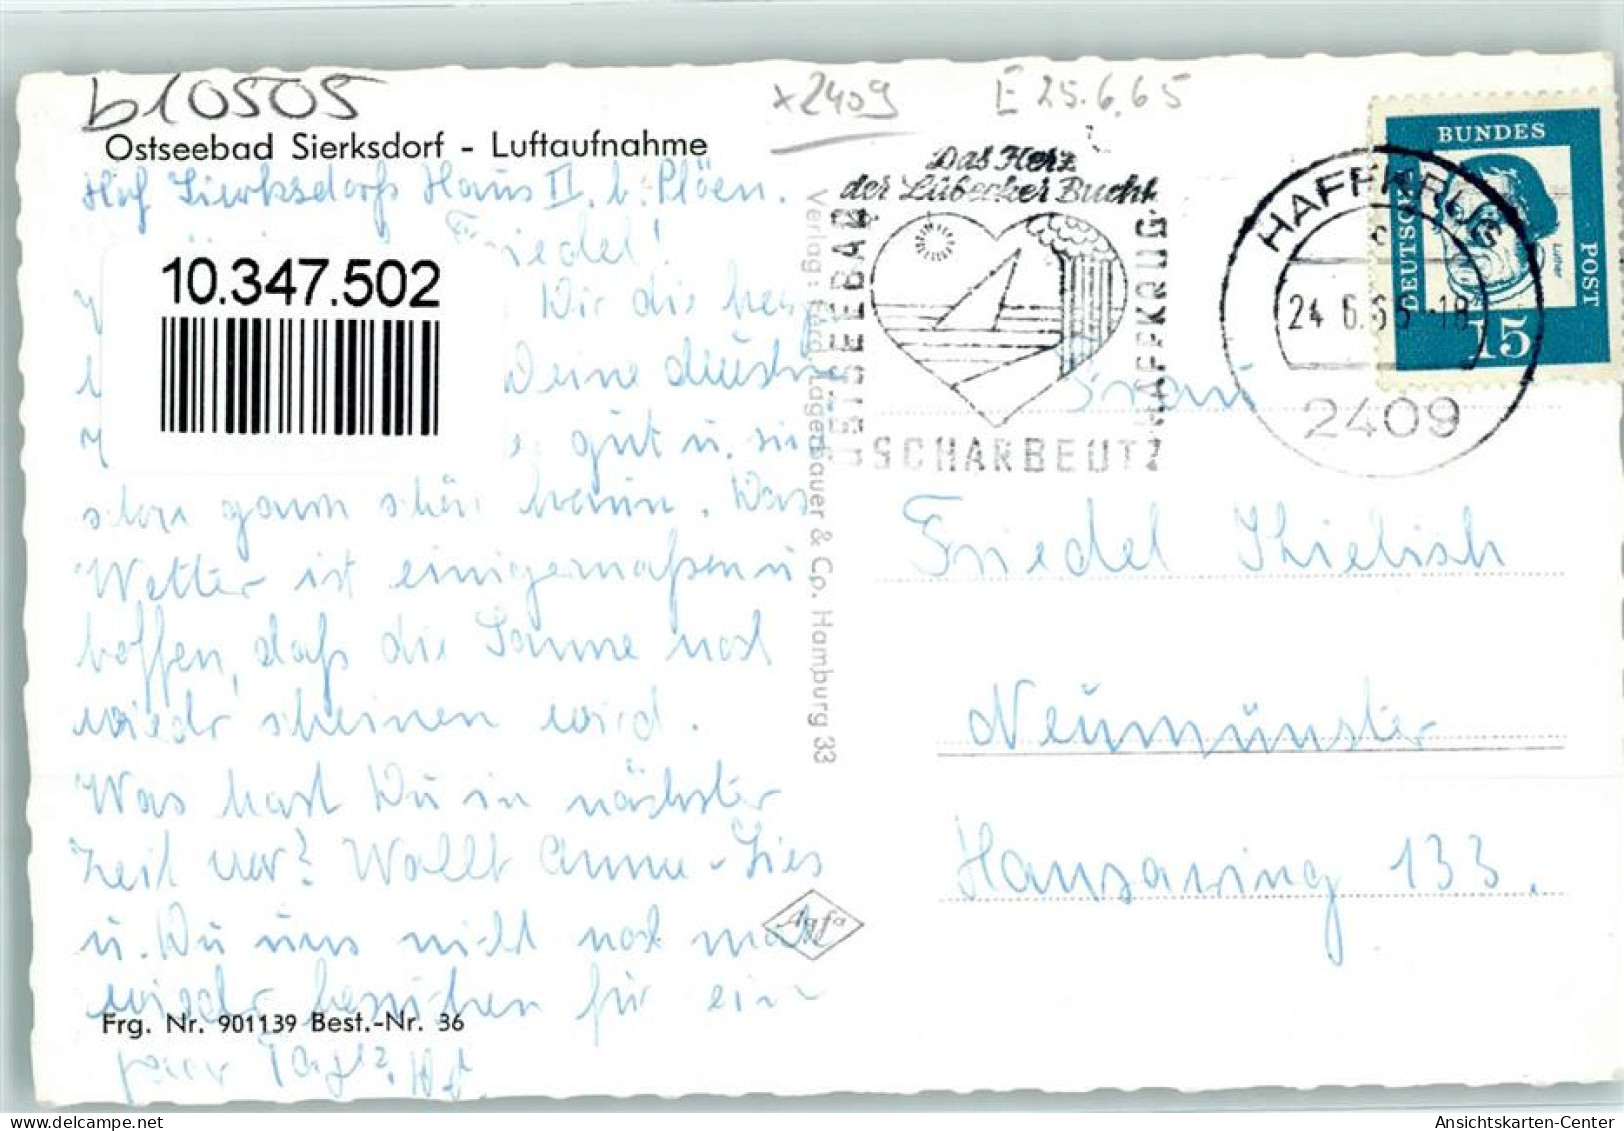 b10505
x2409
E 25.6.65
Ostseebad Sierksdorf - Luftaufnahme
Hof Sierksdorf Haus II. b. Plöen.
Friedel!
10.347.502
Wir die
Deine
gut u. sin
schon ganz schön braun. Das
Wetter ist einigermaßen u
hoffen, daß die Sonne noch
wieder scheinen wird.
Was hast Du in nächster
Zeit vor? Wollt Anne-Lies
u. Du uns nicht noch mal
wieder besuchen für ein
paar Tage?
Frg. Nr. 901139 Best.-Nr. 36
Verlag: Ferd. Lagerbauer & Co. Hamburg 33
Agfa
Das Herz
der Lübecker Bucht
OSTSEEBAD
HAFFKRUG
SCHARBEUTZ
HAFFKRUG
c
24.6.65-18
2409
BUNDES
POST
DEUTSCHE
Luther
15
Frau
Friedel Thielisch
Neumünster
Hansaring 133.
Ansichtskarten-Center